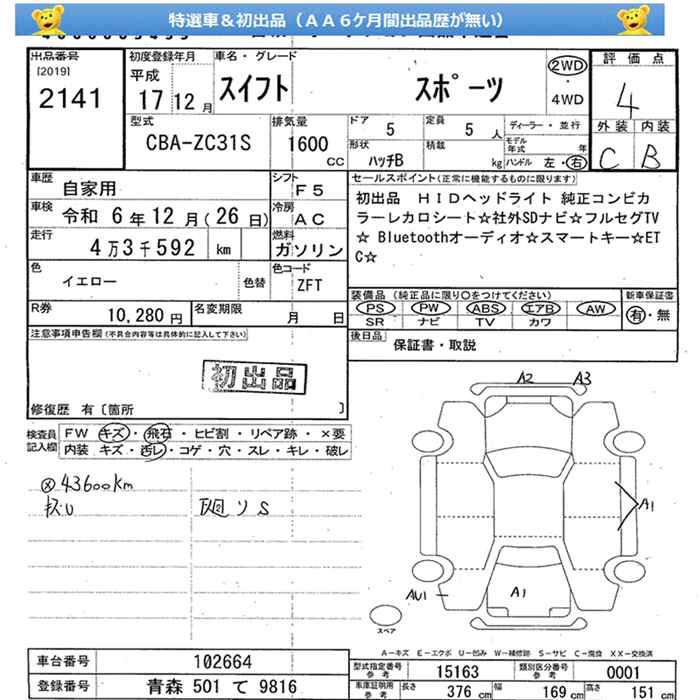 特選車＆初出品（ＡＡ６ケ月間出品歴が無い）
出品番号
[2019]
2141
初度登録年月
平成
17 12 月
車名・グレード
スイフト スポーツ
2WD
・
4WD
評価点
4
外装 内装
C B
型式
CBA-ZC31S
排気量
1600
CC
ドア
5
定員
5 人
ディーラー・並行
形状
ハッチB
積載
kg
モデル年式 年
ハンドル 左・右
車歴
自家用
シフト
F5
車検
令和 6 年 12 月（26 日）
冷房
AC
走行
4 万 3 千 592 km
燃料
ガソリン
色
イエロー
色替
色コード
ZFT
R券
10,280 円
名変期限
月 日
セールスポイント(正常に機能するものに限ります)
初出品 ＨＩＤヘッドライト 純正コンビカ
ラーレカロシート☆社外SDナビ☆フルセグTV
☆ Bluetoothオーディオ☆スマートキー☆ET
C☆
装備品（純正品に限り○をつけてください）
PS PW ABS エアB AW
SR ナビ TV カワ
新車保証書
有・無
後日品
保証書・取説
注意事項申告欄(不具合内容等は具体的に記入して下さい)
初出品
修復歴 有〔箇所 〕
検査員
記入欄
FW キズ・飛石・ヒビ割・リペア跡・×要
内装 キズ・汚レ・コゲ・穴・スレ・キレ・破レ
43600km
A2 A3
A1
A1
AU1
スペア
A－キズ E－エクボ U－凹み W－補修跡 S－サビ C－腐食 XX－交換済
車台番号 102664
登録番号 青森 501 て 9816
型式指定番号
参考
15163
類別区分番号
参考
0001
車庫証明用
参考
長さ 376 cm 幅 169 cm 高さ 151 cm